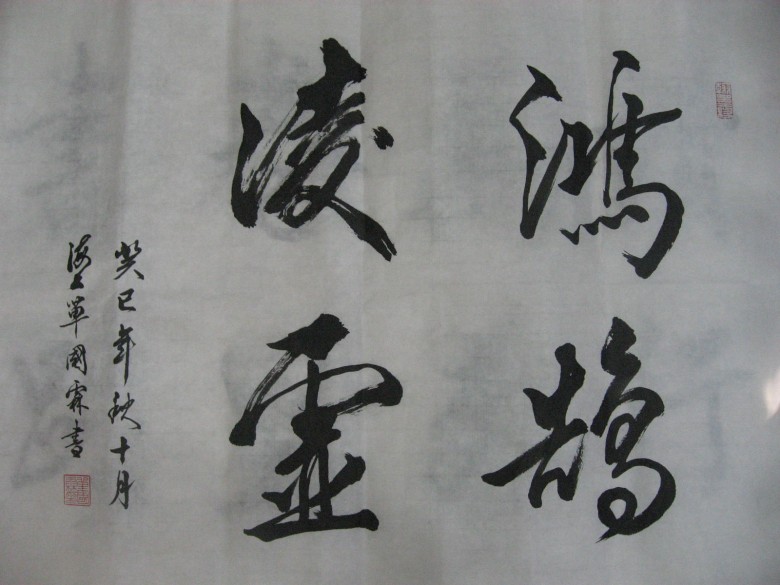 鴻鵠
凌霊
癸巳年秋十月
海上單國霖書